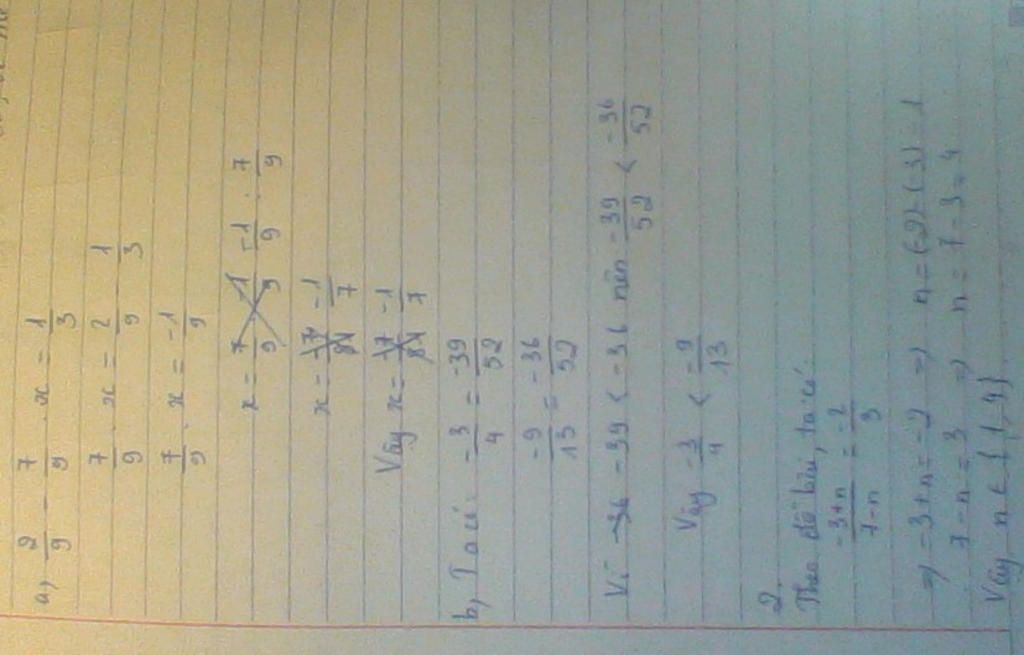 a, 2/9 - 7/9 . x = 1/3
7/9 . x = 2/9 1/3
7/9 . x = -1/9
x = -1/9 . 7/9
x = -1/7
Vậy x = -1/7
b, Ta có: -3/4 = -39/52
-9/13 = -36/52
Vì -39 < -36 nên -39/52 < -36/52
Vậy -3/4 < -9/13
2.
Theo đề bài, ta có:
-3+n/7-n = -2/3
=> = 3+n = -2 => n = (-2) - (-3) = 1
7-n = 3 => n = 7-3 = 4
Vậy n ∈ {1,4}